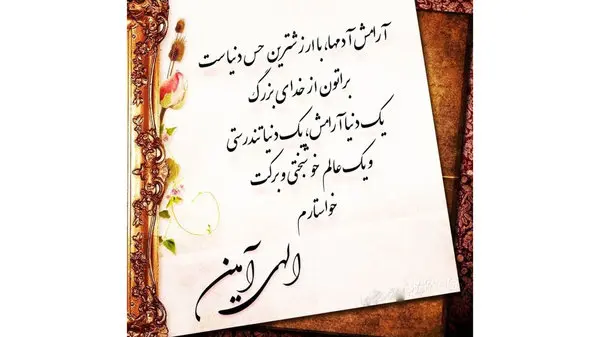 آرامش آدمها، با ارزشترین حس دنیاست
براتون از خدای بزرگ
یک دنیا آرامش، یک دنیا تندرستی
و یک عالم خوشبختی و برکت
خواستارم
الهی آمین